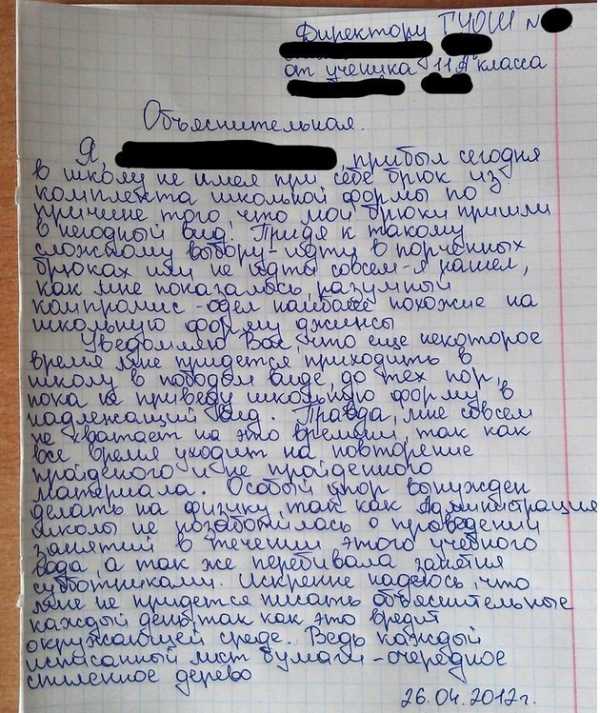 Директору ГУОШ №
от ученика 11А класса
Объяснительная.
Я, , прибыл сегодня
в школу не имея при себе брюк из
комплекта школьной формы по
причине того, что мои брюки пришли
в негодный вид. Придя к такому
сложному выбору - идти в порченных
брюках или не идти совсем - я нашел,
как мне показалось, разумный
компромис - одел наиболее похожие на
школьную форму джинсы
Уведомляю Вас, что еще некоторое
время мне придется приходить в
школу в подобом виде, до тех пор,
пока не приведу школьную форму в
надлежащий вид. Правда, мне совсем
не хватает на это времени, так как
все время уходит на повторение
пройденого и не пройденного
материала. Особый упор вынужден
делать на физику, так как Администрация
школы не позаботилась о проведении
занятий в течении этого учебного
года, а так же перебивала занятия
субботниками. Искренне надеюсь, что
мне не придется писать объяснительные
каждый день, так как это вредит
окружающей среде. Ведь каждый
исписанный лист бумаги - очередное
спиленное дерево
26.04.2012г.